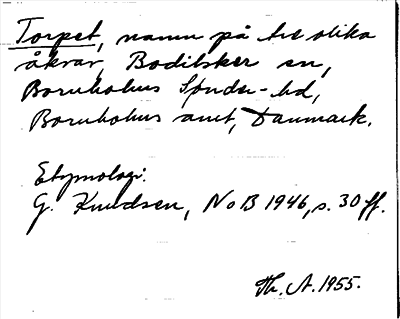 Torpet, namn på tre olika
åkrar, Bodilsker sn,
Bornholms Sønder-hd,
Bornholms amt, Danmark.
Etymologi:
G. Knudsen, NoB 1946, s. 30 ff.
Th. A. 1955.